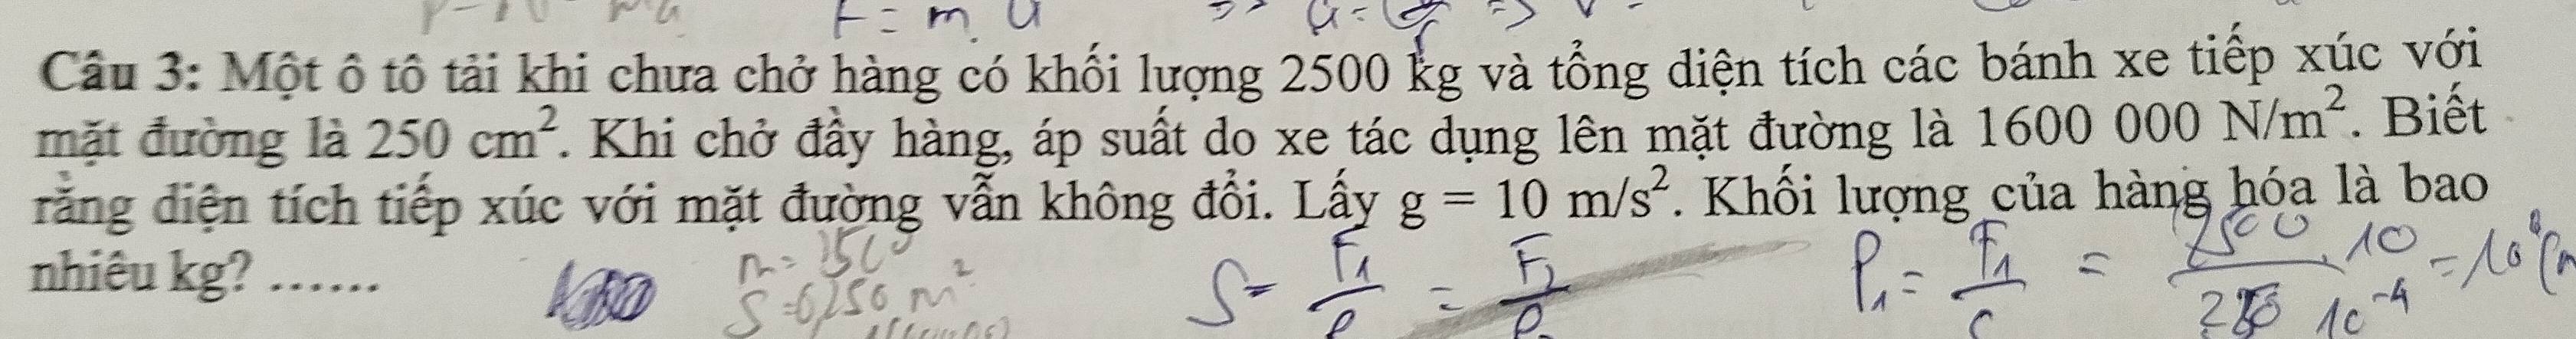 F = m. a
Câu 3: Một ô tô tải khi chưa chở hàng có khối lượng 2500 kg và tổng diện tích các bánh xe tiếp xúc với
mặt đường là 250 cm². Khi chở đầy hàng, áp suất do xe tác dụng lên mặt đường là 1600 000 N/m². Biết
rằng diện tích tiếp xúc với mặt đường vẫn không đổi. Lấy g = 10 m/s². Khối lượng của hàng hóa là bao
nhiêu kg? ......
S = F₁ = F₂
P₁ = F₁ = 2500.10
10⁻⁴